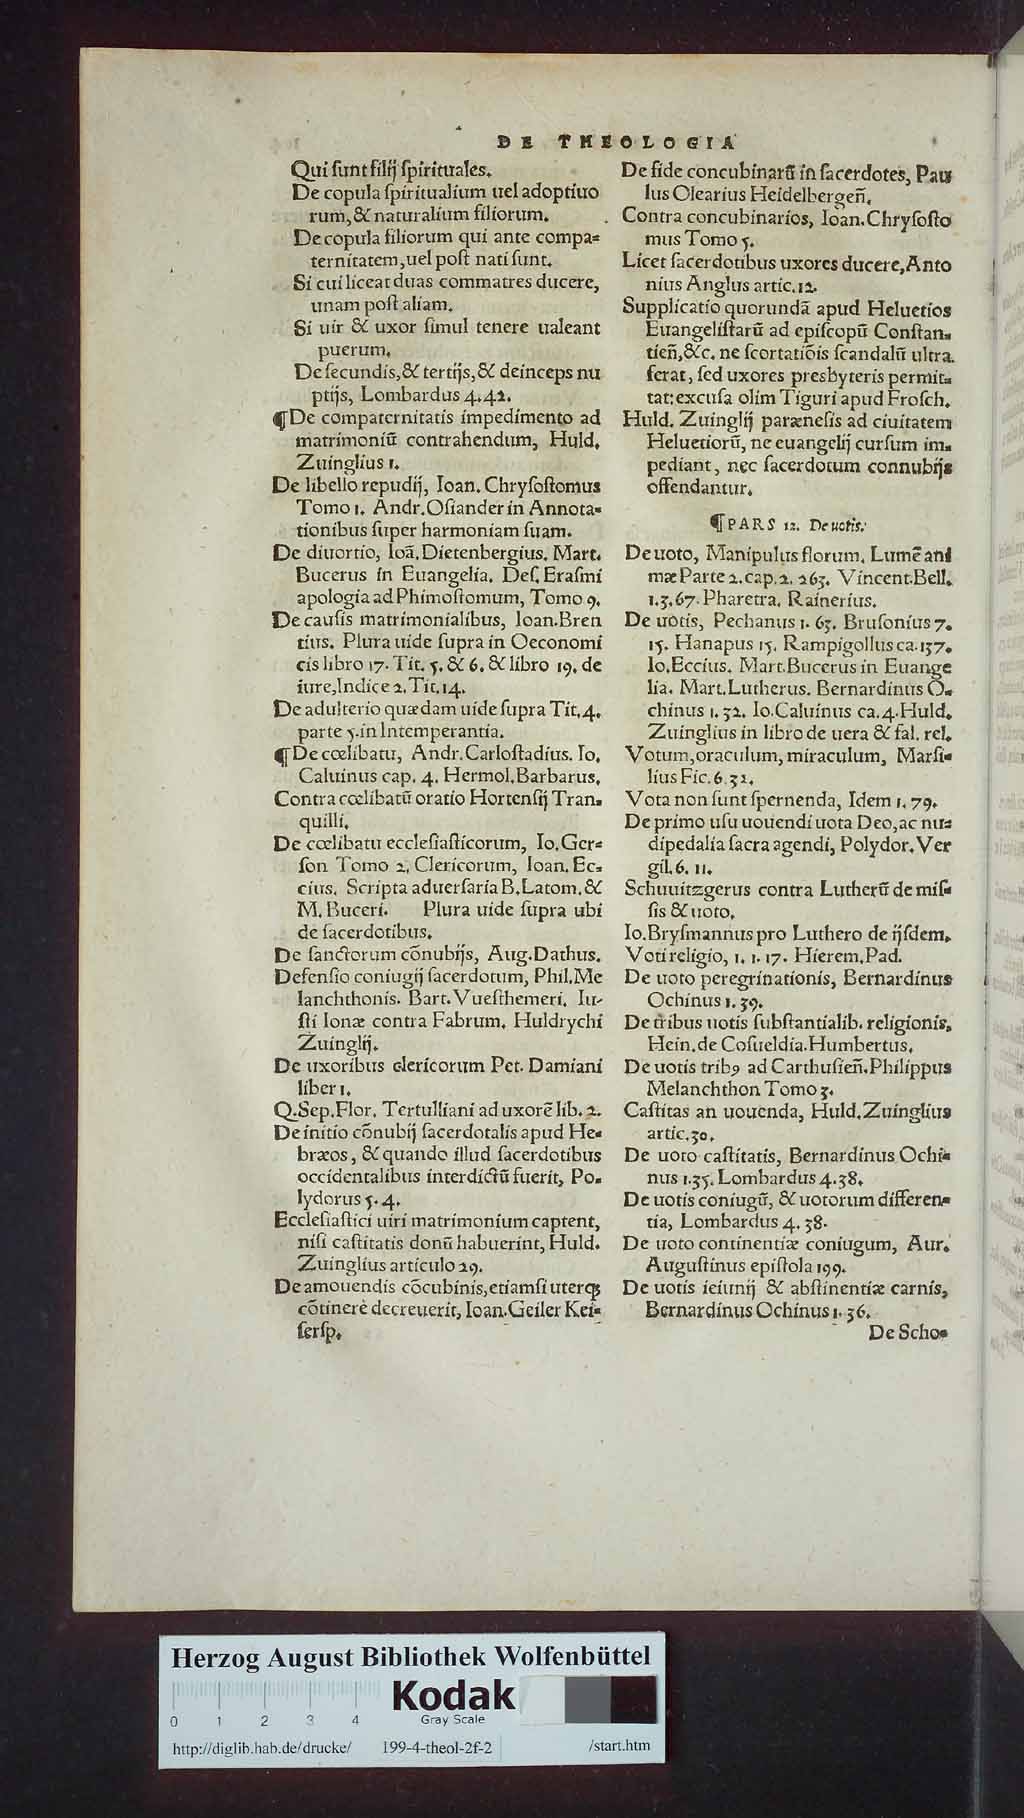 DE THEOLOGIA
Qui ſunt filij ſpirituales.
De copula ſpiritualium uel adoptiuo
rum, & naturalium filiorum.
De copula filiorum qui ante compa-
ternitatem, uel poſt nati ſunt.
Si cui liceat duas commatres ducere,
unam poſt aliam.
Si uir & uxor ſimul tenere ualeant
puerum.
De ſecundis, & tertijs, & deinceps nu
ptijs, Lombardus 4.42.
¶ De compaternitatis impedimento ad
matrimoniũ contrahendum, Huld.
Zuinglius 1.
De libello repudij, Ioan. Chryſoſtomus
Tomo 1. Andr. Oſiander in Annota-
tionibus ſuper harmoniam ſuam.
De diuortio, Ioã. Dietenbergius. Mart.
Bucerus in Euangelia. Deſ. Eraſmi
apologia ad Phimoſtomum, Tomo 9.
De cauſis matrimonialibus, Ioan. Bren
tius. Plura uide ſupra in Oeconomi
cis libro 17. Tit. 5. & 6. & libro 19. de
iure, Indice 2. Tit. 14.
De adulterio quædam uide ſupra Tit. 4.
parte 5. in Intemperantia.
¶ De cœlibatu, Andr. Carloſtadius. Io.
Caluinus cap. 4. Hermol. Barbarus.
Contra cœlibatũ oratio Hortenſij Tran-
quilli.
De cœlibatu eccleſiaſticorum, Io. Ger-
ſon Tomo 2. Clericorum, Ioan. Ec-
cius. Scripta aduerſaria B. Latom. &
M. Buceri. Plura uide ſupra ubi
de ſacerdotibus.
De ſanctorum cõnubijs, Aug. Dathus.
Defenſio coniugij ſacerdotum, Phil. Me
lanchthonis. Bart. Vueſthemeri. Iu-
ſti Ionæ contra Fabrum. Huldrychi
Zuinglij.
De uxoribus clericorum Pet. Damiani
liber 1.
Q. Sep. Flor. Tertulliani ad uxorẽ lib. 2.
De initio cõnubij ſacerdotalis apud He-
bræos, & quando illud ſacerdotibus
occidentalibus interdictũ fuerit, Po-
lydorus 5. 4.
Eccleſiaſtici uiri matrimonium captent,
niſi caſtitatis donũ habuerint, Huld.
Zuinglius articulo 29.
De amouendis cõcubinis, etiamſi uterq;
cõtinerè decreuerit, Ioan. Geiler Kei-
ſerſp.
De fide concubinarũ in ſacerdotes, Pau
lus Olearius Heidelbergeñ.
Contra concubinarios, Ioan. Chryſoſto
mus Tomo 5.
Licet ſacerdotibus uxores ducere, Anto
nius Anglus artic. 12.
Supplicatio quorundã apud Heluetios
Euangeliſtarũ ad epiſcopũ Conſtan-
tieñ, &c. ne ſcortatiõis ſcandalũ ultra
ferat, ſed uxores presbyteris permit-
tat: excuſa olim Tiguri apud Froſch.
Huld. Zuinglij parænesis ad ciuitatem
Heluetiorũ, ne euangelij curſum im-
pediant, nec ſacerdotum connubijs
offendantur.
¶ PARS 12. De uotis.
De uoto, Manipulus florum. Lumẽ ani
mæ Parte 2. cap. 2. 263. Vincent. Bell.
1. 3. 67. Pharetra. Rainerius.
De uotis, Pechanus 1. 63. Bruſonius 7.
15. Hanapus 15. Rampigollus ca. 137.
Io. Eccius. Mart. Bucerus in Euange
lia. Mart. Lutherus. Bernardinus O-
chinus 1. 32. Io. Caluinus ca. 4. Huld.
Zuinglius in libro de uera & fal. rel.
Votum, oraculum, miraculum, Marſi-
lius Fic. 6. 32.
Vota non ſunt ſpernenda, Idem 1. 79.
De primo uſu uouendi uota Deo, ac nu-
dipedalia ſacra agendi, Polydor. Ver
gil. 6. 11.
Schuuitzgerus contra Lutherũ de miſ-
ſis & uoto.
Io. Bryſmannus pro Luthero de ijſdem.
Voti religio, 1. 1. 17. Hierem. Pad.
De uoto peregrinationis, Bernardinus
Ochinus 1. 39.
De tribus uotis ſubſtantialib. religionis,
Hein. de Coſueldia. Humbertus.
De uotis tribꝰ ad Carthuſieñ. Philippus
Melanchthon Tomo 3.
Caſtitas an uouenda, Huld. Zuinglius
artic. 30.
De uoto caſtitatis, Bernardinus Ochi-
nus 1. 35. Lombardus 4. 38.
De uotis coniugũ, & uotorum differen-
tia, Lombardus 4. 38.
De uoto continentiæ coniugum, Aur.
Auguſtinus epiſtola 199.
De uotis ieiunij & abſtinentiæ carnis,
Bernardinus Ochinus 1. 36.
De Scho-
Herzog August Bibliothek Wolfenbüttel
Kodak
Gray Scale
0 1 2 3 4
http://diglib.hab.de/drucke/ 199-4-theol-2f-2 /start.htm